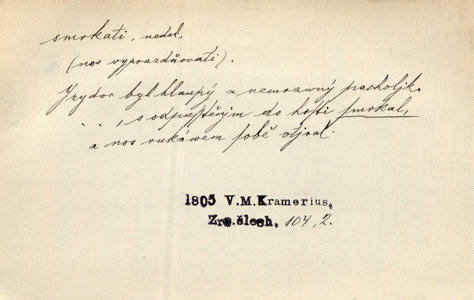 smrkati, nedok.
(nos vyprazdňovati).
Izydor byl hlaupý a nemrawný pacholjk.
. . , s odpuſſtěným do hrſti ſmrkal,
a nos rukáwem ſobě otjral.
1805 V.M.Kramerius,
Zrc.šlech. 104, 2.